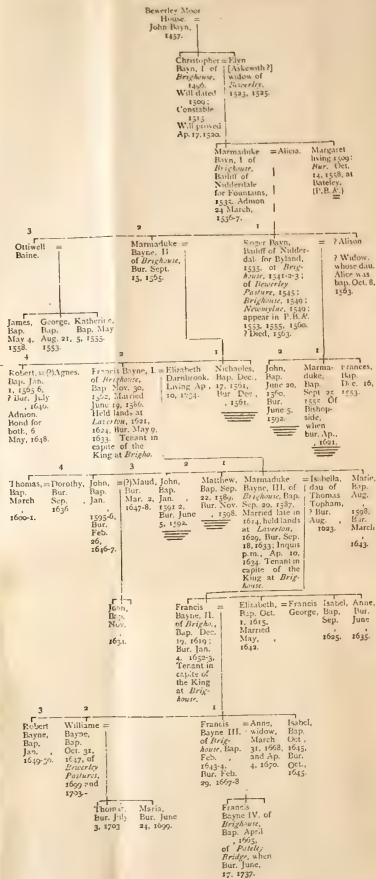 Bewerley Moor
House. =
John Bayn,
1457.
Christopher = Elyn
Bayn, I of [Askewith?]
Brighouse, widow of
1496. Bewerley,
Will dated 1523, 1525.
1509;
Constable
1515
Will proved
Ap. 17, 1520.
Marmaduke = Alicia.
Bayn, I of
Brighouse,
Bailiff of
Nidderdale
for Fountains,
1532. Admon
24 March,
1536-7.
Margaret
living 1509;
Bur. Oct.
14, 1558, at
Pateley.
(P.B.R.)
3
Ottiwell =
Baine.
2
Marmaduke =
Bayne, II
of Brighouse,
Bur. Sept.
15, 1565.
1
Roger Bayn, = ? Alison
Bailiff of Nidder-
dale for Byland,
1535, of Brig-
house, 1541-2-3;
of Bewerley
Pasture, 1545;
Brighouse, 1549;
Newmylne, 1549;
appear in P.B.R.
1553, 1555, 1560.
? Died, 1563.
? Widow,
whose dau.
Alice was
bap. Oct. 8,
1563.
James,
Bap.
May 4,
1558.
George,
Bap.
Aug. 21,
1553.
Katherine,
Bap. May
5, 1555.
2
Robert, = (?) Agnes.
Bap. Jan.
1, 1565-6,
? Bur. July
, 1640.
Admon.
Bond for
both, 6
May, 1648.
1
Francis Bayne, I = Elizabeth
of Brighouse, Darnbrook.
Bap. Nov. 30, Living Ap.
1562, Married 10, 1634.
June 19, 1586.
Held lands at
Laverton, 1621,
1624, Bur. May 9,
1633. Tenant in
capite of the
King at Brigho.
Nicholaes,
Bap. Dec.,
17, 1561,
Bur Dec.,
, 1561.
John,
Bap.
June 20,
1560.
Bur.
June 5,
1592.
Marma-
duke,
Bap.
Sept 27
1557. Of
Bishop-
side,
when
bur. Ap.,
, 1621.
Frances,
Bap.
Dec. 16,
1553.
4
Thomas, = Dorothy,
Bap. Bur.
March Sep.
, 1636
1600-1.
3
John, = (?) Maud,
Bap. Bur.
Jan. Mar. 2,
, 1647-8.
1595-6,
Bur.
Feb.
26,
1646-7.
John,
Bap.
Jan.
, 1591-2,
Bur. June
5, 1592.
2
Matthew,
Bap. Sep.
22, 1589,
Bur. Nov.
, 1598.
1
Marmaduke = Isabella,
Bayne, III. of dau of
Brighouse, Bap. Thomas
Sep. 20, 1587. Topham,
Married late in ? Bur.
1614, held lands Aug.
at Laverton, , 1623.
1629, Bur. Sep.
18, 1633; Inquis
p.m., Ap. 10,
1634. Tenant in
capite of the
King at Brig-
house.
Marie,
Bap.
Aug.
,
1598,
Bur.
March
,
1643.
John,
Bap,
Nov.
,
1631.
Francis =
Bayne, II.
of Brigho.,
Bap. Dec.
19, 1619;
Bur. Jan.
4, 1652-3,
Tenant in
capite of
the King
at Brig-
house.
Elizabeth, = Francis
Bap. Oct. George,
1, 1615.
Married
May, ,
1642.
Isabel,
Bap,
Sep.
,
1625.
Anne,
Bur.
June
,
1635.
3
Robert
Bayne,
Bap,
Jan. ,
1649-50.
2
Williame =
Bayne,
Bap.
Oct. 31,
1647, of
Bewerley
Pastures,
1699 and
1703.
1
Francis = Anne,
Bayne III. widow,
of Brig- March
house, Bap. 31, 1668,
Feb. , and Ap.
1643-4, 4, 1670.
Bur. Feb.
29, 1667-8
Isabel,
Bap,
Oct ,
1645,
Bur.
Oct.,
1645.
Thomas,
Bur. July
3, 1703
Maria,
Bur. June
24, 1699.
Francis
Bayne IV. of
Brighouse,
Bap. April
, 1665,
of Pateley
Bridge, when
Bur. June,
17, 1737.